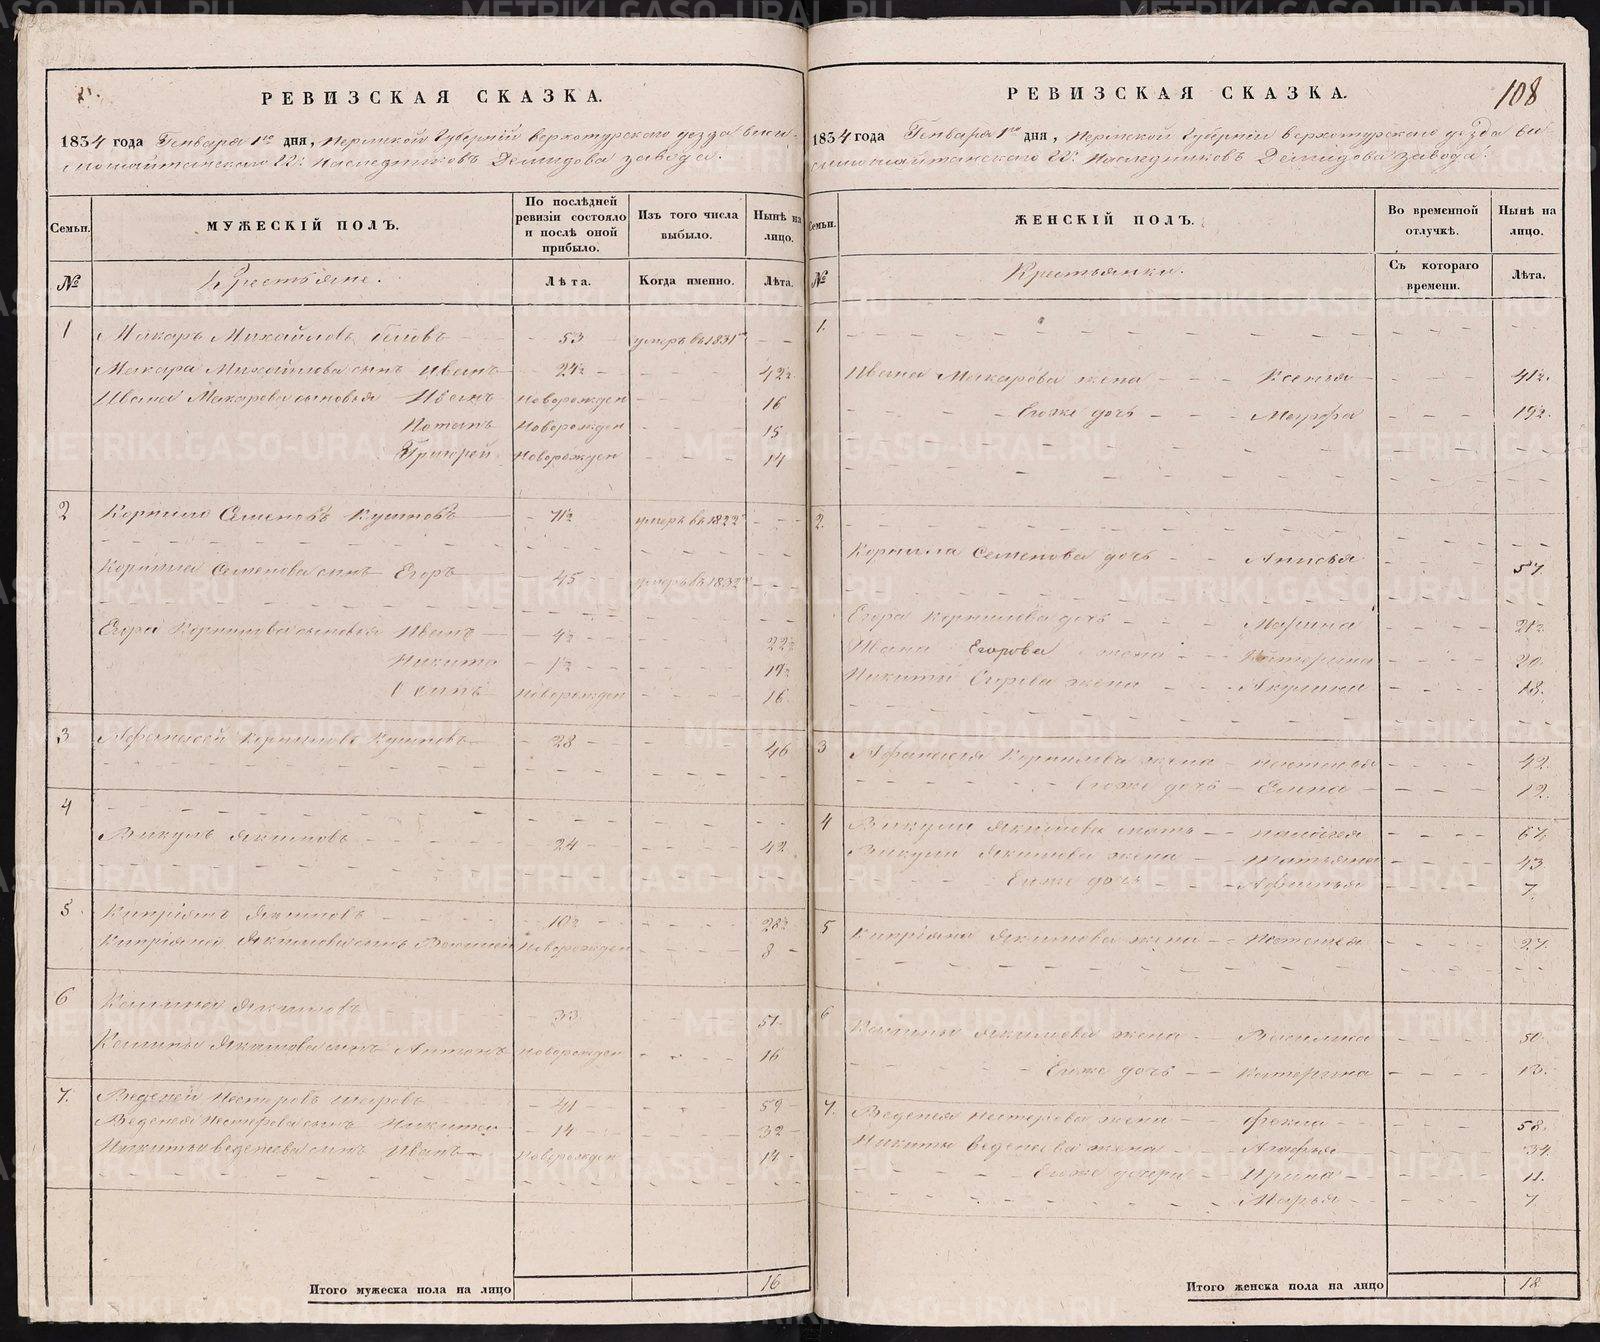 РЕВИЗСКАЯ СКАЗКА.
1834 года Генваря 1го дня, Пермской Губернии верхотурскаго уезда виси-
мошайтанскаго Гг: Наследниковъ Демидова завода.
Семьи.
МУЖЕСКІЙ ПОЛЪ.
По послѣдней ревизіи состояло и послѣ оной прибыло.
Изъ того числа выбыло.
Нынѣ на лицо.
№
Крестьяне.
Лѣта.
Когда именно.
Лѣта.
1 Макаръ Михайловъ 53 умеръ въ 1831
Макара Михайлова сынъ Иванъ 24½ 42½
Ивана Макарова сыновья Иванъ Новорожден 16
Потапъ Новорожден 15
Григорей Новорожден 14
2 Корнило Семеновъ 71½ умеръ въ 1822
Корнила Семенова сынъ Егоръ 45 умеръ въ 1832
Егора Корнилова сыновья Иванъ 4½ 22½
Никита 1½ 19½
Новорожден 16
3 Афанасей Корниловъ 28 46
4
Викулъ Якимовъ 24 42
5 Кипріянъ Якимовъ 10½ 28½
Кипріяна Якимова сынъ Новорожден 8
6 Калина Якимовъ 33 51
Калины Якимова сынъ Антонъ Новорожден 16
7. Веденей Нестеровъ 41 59
Веденея Нестерова сынъ Никита 14 32
Никиты веденеева сынъ Иванъ Новорожден 14
Итого мужеска пола на лицо 16
108
РЕВИЗСКАЯ СКАЗКА.
1834 года Генваря 1го дня, Пермской Губернии верхотурскаго уезда ви-
симошайтанскаго Гг: Наследниковъ Демидова завода.
Семьи.
ЖЕНСКІЙ ПОЛЪ.
Во временной отлучкѣ.
Нынѣ на лицо.
№
Крестьянки.
Съ котораго времени.
Лѣта.
1.
Ивана Макарова жена Ксенья 41½
Его же дочь Мавра 19½
2.
Корнила Семенова дочь Анисья 57
Егора Корнилова дочь Марина 21½
Ивана Егорова жена Катерина 20
Никиты Егорова жена Акулина 18
3 Афанасья Корнилова жена 42
Его же дочь Елена 12
4 Викула Якимова мать 67
Викула Якимова жена Татьяна 43
Его же дочь Афимья 7
5 Кипріяна Якимова жена 27
6
Калины Якимова жена Василиса 50
Его же дочь Катерина 13
7. Веденея Нестерова жена Фекла 58
Никиты веденеева жена Агафья 34
Его же дочери Ирина 11
Марья 7
Итого женска пола на лицо 18
METRIKI.GASO-URAL.RU